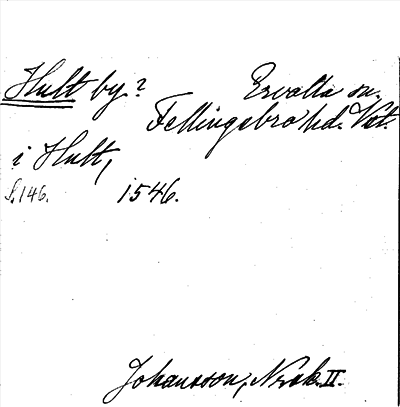 Hult by? Ervalla sn.
Fellingsbro hd. Vstm.
i Hult,
S. 146. 1546.
Johansson, Norask. II.